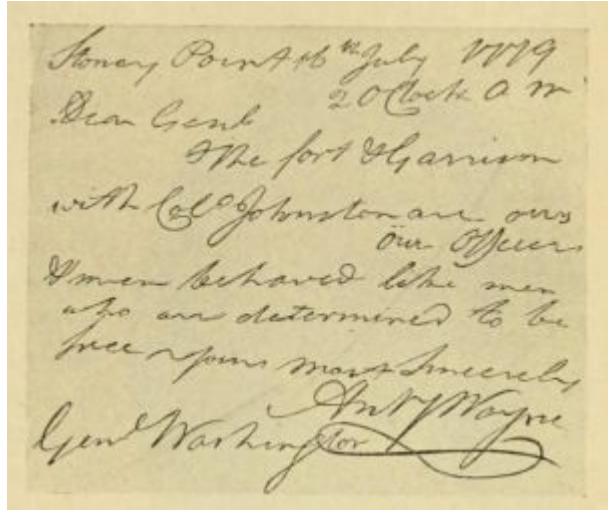 Stoney Point 16th July 1779
2 O Clock A M
Dear Genl
The fort & Garrison
with Colo. Johnston are ours
Our Officers
& men behaved like men
who are determined to be
free
Yours most Sincerely
Anty Wayne
Genl Washington